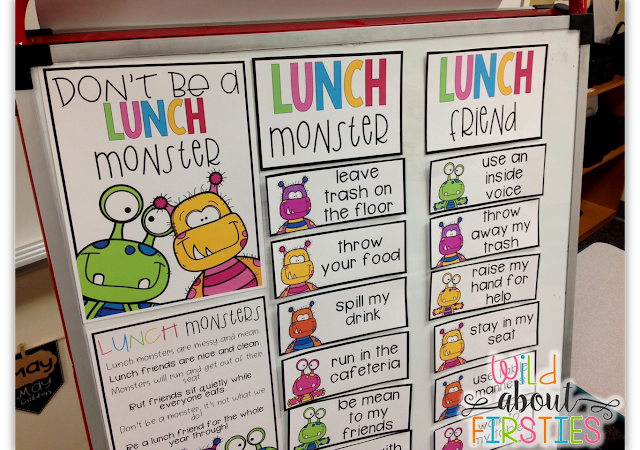 DON'T BE A
LUNCH
MONSTER
LUNCH MONSTERS
Lunch monsters are messy and mean.
Lunch friends are nice and clean.
Monsters will run and get out of their
seat
But friends sit quietly while
everyone eats
Don't be a monster, it's not what we
do!
Be a lunch friend for the whole
year through!
LUNCH
MONSTER
leave
trash on
the floor
throw
your food
spill my
drink
run in the
cafeteria
be mean
to my
friends
with
LUNCH
FRIEND
use an
inside
voice
throw
away my
trash
raise my
hand for
help
stay in my
seat
use
May
May
Wild
about
FIRSTIES